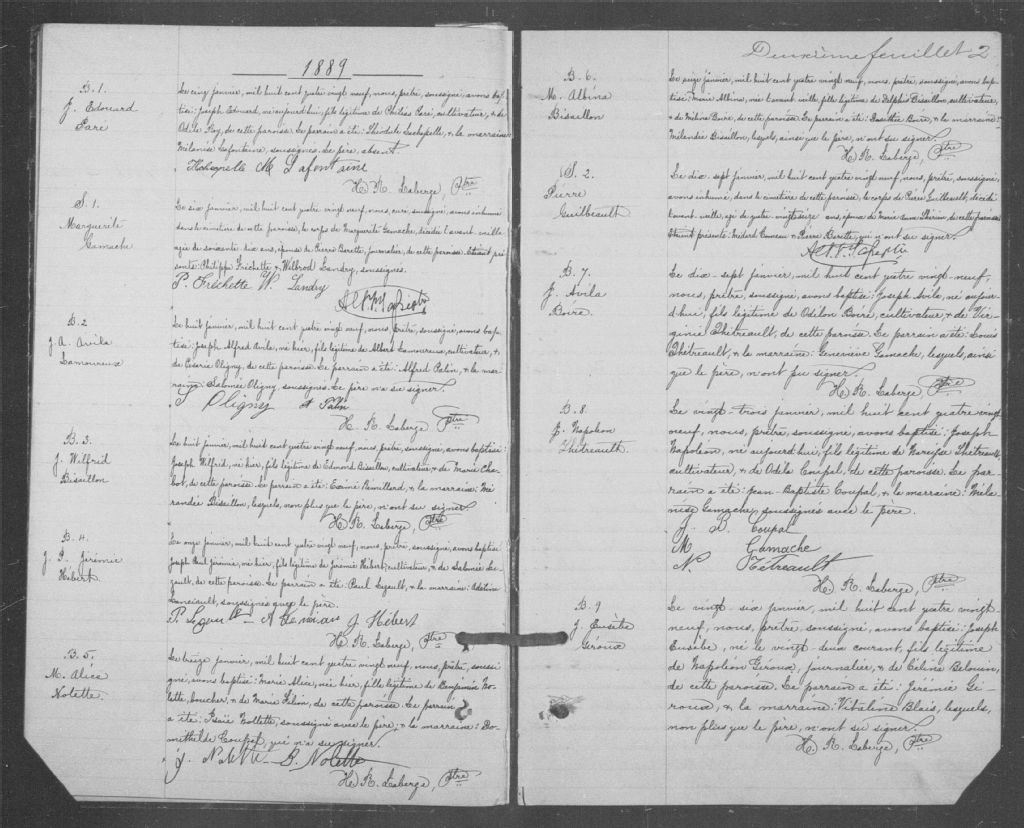 1889
B. 1.
J. Edouard
Paré
Le cinq janvier, mil huit cent quatre vingt neuf, nous, prêtre, soussigné, avons bap-
tisé: Joseph Edouard, né aujourd'hui, fils légitime de Philias Paré, cultivateur, & de
Roy, de cette paroisse. Le parrain a été: Théodule Lachapelle, & la marraine:
Mélanise Lafontaine, soussignés. Le père, absent.
M Lafontaine
H. R. Laberge, Ptre
S. 1.
Marguerite
Gamache
Le six janvier, mil huit cent quatre vingt neuf, nous, curé, soussigné, avons inhumé
dans le cimetière de cette paroisse, le corps de Marguerite Gamache, décédée l'avant-veille
agée de soixante dix ans, épouse de Pierre Barette, journalier, de cette paroisse. Etaient pré-
sents: Philippe Fréchette & Wilbrod Landry, soussignés.
P. Fréchette W. Landry
B. 2
J. A. Avila
Lamoureux
Le huit janvier, mil huit cent quatre vingt neuf, nous, prêtre, soussigné, avons bap-
tisé: Joseph Alfred Avila, né hier, fils légitime de Albert Lamoureux, cultivateur, &
de Oligny, de cette paroisse. Le parrain a été: Alfred Palin, & la mar-
raine: Salomée Oligny, soussignés. Le père n'a su signer.
S Oligny A Palin
H. R. Laberge Ptre
B. 3.
J. Wilfrid
Bisaillon
Le huit janvier, mil huit cent quatre vingt neuf, nous, prêtre, soussigné, avons baptisé:
Joseph Wilfrid, né hier, fils légitime de Edmond Bisaillon, cultivateur, & de Marie Cha-
bot, de cette paroisse. Le parrain a été: Rémillard, & la marraine: Mé-
randée Bisaillon, lesquels, non plus que le père, n'ont su signer.
H. R. Laberge, Ptre
B. 4.
J. P. Jérémie
Hébert.
Le onze janvier, mil huit cent quatre vingt neuf, nous, prêtre, soussigné, avons baptisé:
Joseph Paul Jérémie, né hier, fils légitime de Jérémie Hébert, cultivateur, & de Salomée Le-
gault, de cette paroisse. Le parrain a été: Paul Legault, & la marraine: Adeline
soussignés avec le père.
J Hébert
H. R. Laberge, Ptre
B. 5.
M. Alice
Nolette.
Le treize janvier, mil huit cent quatre vingt neuf, nous, prêtre, soussi-
gné, avons baptisé: Marie Alice, née hier, fille légitime de Benjamin No-
lette, boucher, & de Marie de cette paroisse. Le parrain
a été: Isaïe Nollette, soussigné avec le père, & la marraine: Do-
methilde Coupal, qui n'a su signer.
J. Nolette B. Nolette
H. R. Laberge, Ptre
Deuxième feuillet 2
B. 6.
M. Albina
Bisaillon
Le seize janvier, mil huit cent quatre vingt neuf, nous, prêtre, soussigné, avons bap-
tisé: Marie Albina, née l'avant veille, fille légitime de Delphis Bisaillon, cultivateur,
& de Boire, de cette paroisse. Le parrain a été: Boire, & la marraine:
Bisaillon, lesquels, ainsi que le père, n'ont su signer.
H. R. Laberge, Ptre
S. 2.
Pierre
Guilbeault
Le dix-sept janvier, mil huit cent quatre vingt neuf, nous, prêtre, soussigné,
avons inhumé, dans le cimetière de cette paroisse, le corps de Pierre Guilbeault, décédé
l'avant-veille, agé de quatre-vingt-seize ans, époux de Marie-Anne de cette paroisse.
Etaient présents: Médard & Pierre Barette, qui n'ont su signer.
B. 7.
J. Avila
Boire.
Le dix-sept janvier, mil huit cent quatre vingt-neuf,
nous, prêtre, soussigné, avons baptisé: Joseph Avila, né aujour-
d'hui, fils légitime de Odelon Boire, cultivateur, & de Vir-
ginie Thétreault, de cette paroisse. Le parrain a été: Louis
Thétreault, & la marraine: Geneviève Gamache, lesquels, ainsi
que le père, n'ont su signer.
H. R. Laberge, Ptre
B. 8.
J. Napoléon
Thétreault.
Le vingt-trois janvier, mil huit cent quatre vingt
neuf, nous, prêtre, soussigné, avons baptisé: Joseph
Napoléon, né aujourd'hui, fils légitime de Narcisse Thétreault
cultivateur, & de Odela Coupal, de cette paroisse. Le par-
rain a été: Jean-Baptiste Coupal, & la marraine: Méla-
nise Gamache, soussignés avec le père.
J. B. Coupal
M. Gamache
N. Tétreault
H. R. Laberge, Ptre
B. 9
J. Eusèbe
Géroux
Le vingt six janvier, mil huit cent quatre vingt
neuf, nous, prêtre, soussigné, avons baptisé: Joseph
Eusèbe, né le vingt-deux courant, fils légitime
de Napoléon Géroux, journalier, & de Céline Blouin,
de cette paroisse. Le parrain a été: Jérémie Gé-
roux, & la marraine: Vitaline Blais, lesquels,
non plus que le père, n'ont su signer.
H. R. Laberge, Ptre